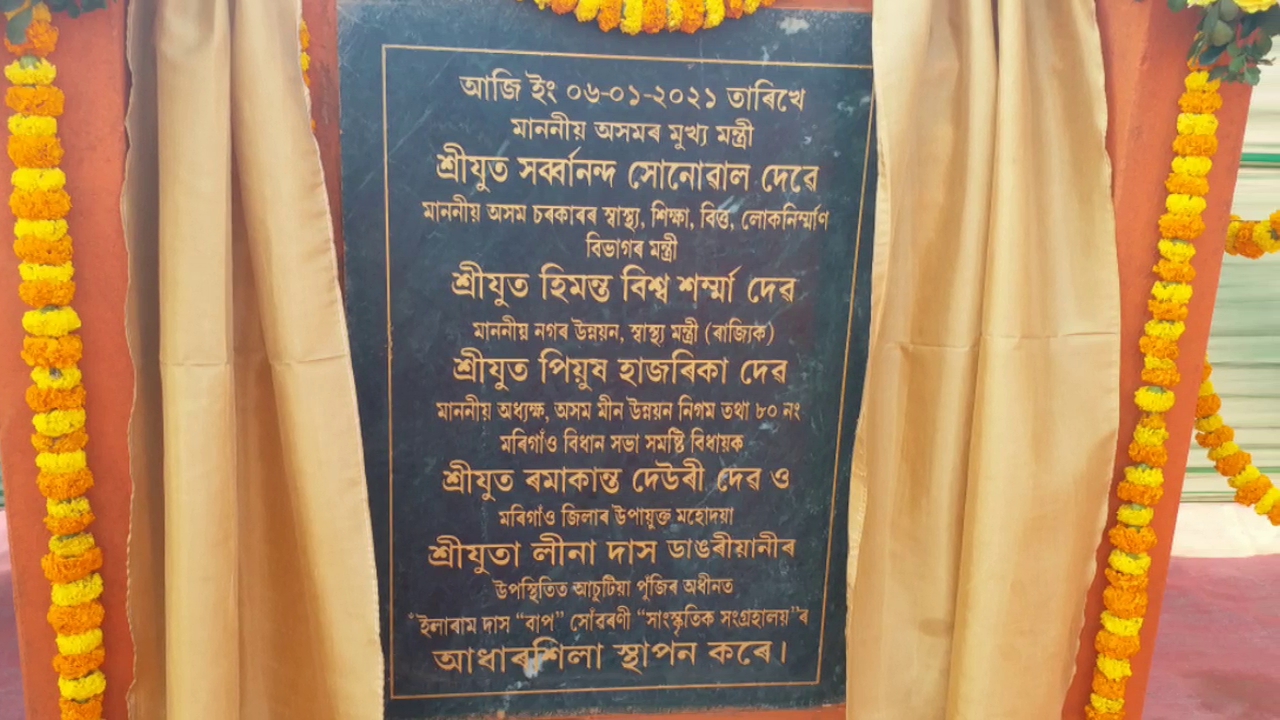 আজি ইং ০৬-০১-২০২১ তাৰিখে
মাননীয় অসমৰ মুখ্য মন্ত্ৰী
শ্ৰীযুত সৰ্ব্বানন্দ সোনোৱাল দেৱে
মাননীয় অসম চৰকাৰৰ স্বাস্থ্য, শিক্ষা, বিত্ত, লোকনিৰ্ম্মাণ
বিভাগৰ মন্ত্ৰী
শ্ৰীযুত হিমন্ত বিশ্ব শৰ্ম্মা দেৱ
মাননীয় নগৰ উন্নয়ন, স্বাস্থ্য মন্ত্ৰী (ৰাজ্যিক)
শ্ৰীযুত পিয়ুষ হাজৰিকা দেৱ
মাননীয় অধ্যক্ষ, অসম মীন উন্নয়ন নিগম তথা ৮০ নং
মৰিগাঁও বিধান সভা সমষ্টি বিধায়ক
শ্ৰীযুত ৰমাকান্ত দেউৰী দেৱ ও
মৰিগাঁও জিলাৰ উপায়ুক্ত মহোদয়া
শ্ৰীযুতা লীনা দাস ডাঙৰীয়ানীৰ
উপস্থিতিত আচুটিয়া পুঁজিৰ অধীনত
ঁইলাৰাম দাস “বাপ” সোঁৱৰণী “সাংস্কৃতিক সংগ্ৰহালয়”ৰ
আধাৰশিলা স্থাপন কৰে।